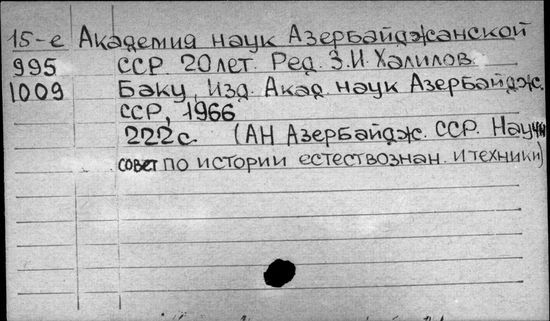 15-е Академия наук Азербайджанской
995 ССР. 20 лет. Ред. З.И. Халилов.
1009 Баку, Изд. Акад. наук Азербайдж.
ССР, 1966
222 с. (АН Азербайдж. ССР. Научн
совет по истории естествознан. и техники)